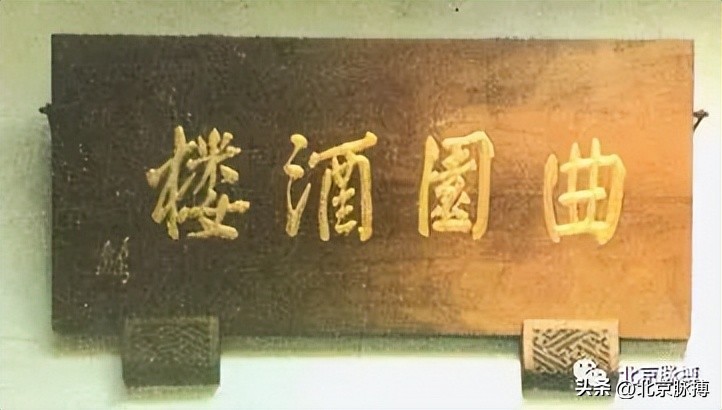 曲園酒楼
北京脉搏
头条 @北京脉搏